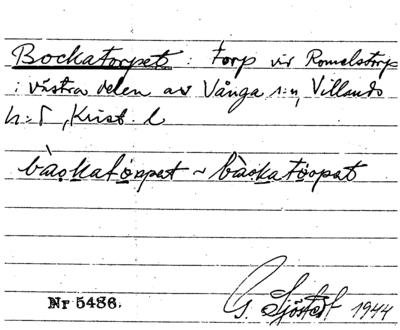 Bockatorpet: torp vid Romelstorp
i västra delen av Vånga s:n, Villands
h:d, Krist. l
bàokatòrpat ~ bàokatòopat
G. Sjöstedt 1944
Nr 5486.